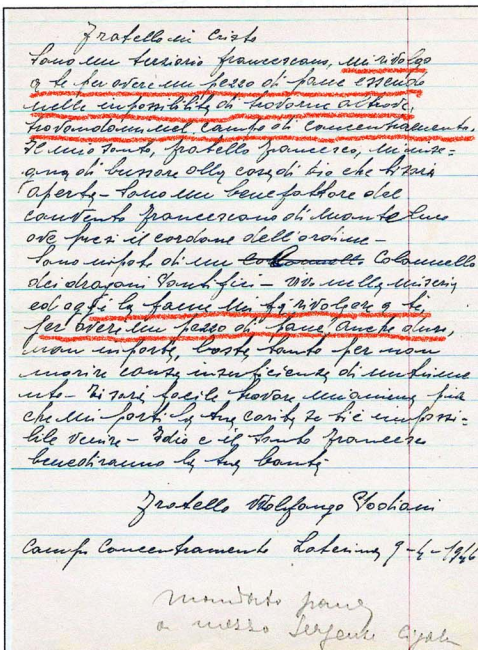 Fratello in Cristo
Sono un terziario francescano, mi rivolgo
a te per avere un pezzo di pane essendo
nella impossibilità di trovarne altrove,
trovandomi nel campo di concentramento.
Il mio Santo, fratello Francesco, mi inse-
gna di bussare alla casa di Dio che ti sarà
aperta - Sono un benefattore del
convento francescano di Monteluce
ove presi il cordone dell'ordine -
Sono nipote di un Colonnello
dei dragoni Pontifici - vivo nella miseria
ed oggi la fame mi fa rivolgere a te
per avere un pezzo di pane, anche duro,
non importa, basta tanto per non
morire causa insufficienza di nutrime
nto - Ti sarà facile trovare un anima pia
che mi porti la tua carità se ti è impossi-
bile venire - Idio e il Santo Francesco
benediranno la tua bontà -
Fratello
Campo Concentramento Laterina 9-4-1946
mandato pane
a mezzo Sergente